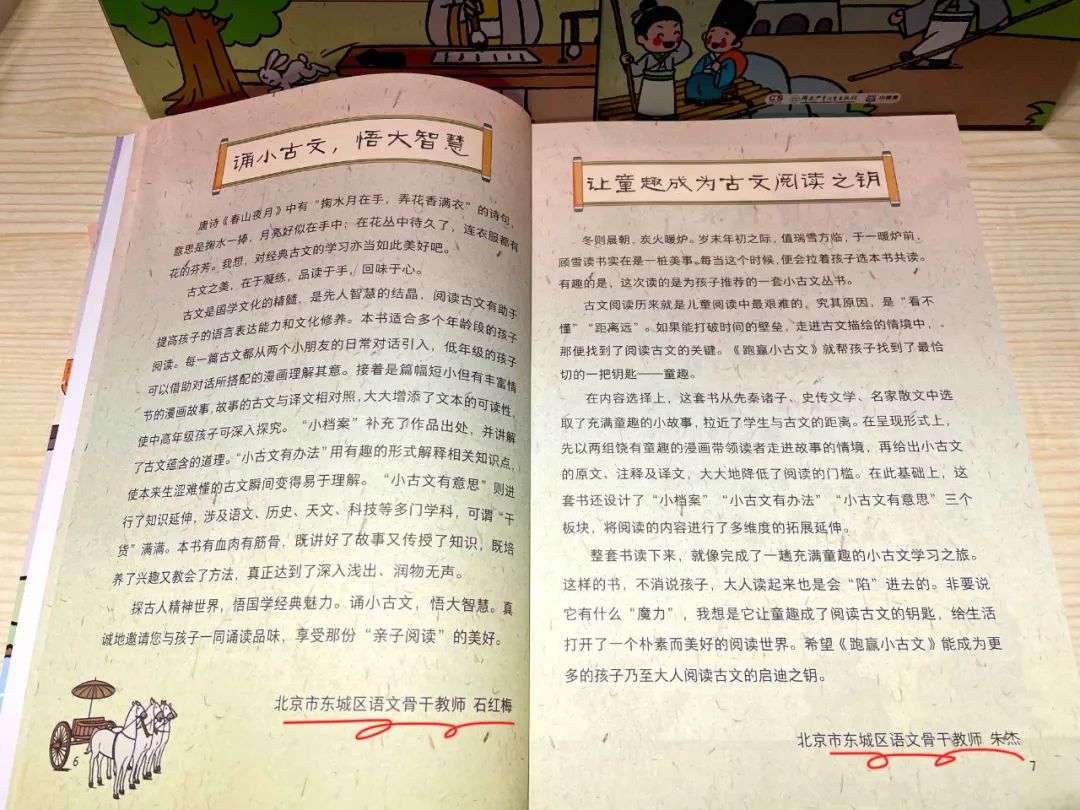 诵小古文，悟大智慧
唐诗《春山夜月》中有“掬水月在手，弄花香满衣”的诗句，
意思是掬水一捧，月亮好似在手中；在花丛中待久了，连衣服都有
花的芬芳。我想，对经典古文的学习亦当如此美好吧。
古文之美，在于凝练，品读于手，回味于心。
古文是国学文化的精髓，是先人智慧的结晶，阅读古文有助于
提高孩子的语言表达能力和文化修养。本书适合多个年龄段的孩子
阅读。每一篇古文都从两个小朋友的日常对话引入，低年级的孩子
可以借助对话所搭配的漫画理解其意。接着是篇幅短小但有丰富情
节的漫画故事，故事的古文与译文相对照，大大增添了文本的可读性，
使中高年级孩子可深入探究。“小档案”补充了作品出处，并讲解
了古文蕴含的道理。“小古文有办法”用有趣的形式解释相关知识点，
使本来生涩难懂的古文瞬间变得易于理解。“小古文有意思”则进
行了知识延伸，涉及语文、历史、天文、科技等多门学科，可谓“干
货”满满。本书有血肉有筋骨，既讲好了故事又传授了知识，既培
养了兴趣又教会了方法，真正达到了深入浅出、润物无声。
探古人精神世界，悟国学经典魅力。诵小古文，悟大智慧。真
诚地邀请您与孩子一同诵读品味，享受那份“亲子阅读”的美好。
北京市东城区语文骨干教师 石红梅
6
让童趣成为古文阅读之钥
冬则晨朝，炭火暖炉。岁末年初之际，值瑞雪方临，于一暖炉前，
顾雪读书实在是一桩美事。每当这个时候，便会拉着孩子选本书共读。
有趣的是，这次读的是为孩子推荐的一套小古文丛书。
古文阅读历来就是儿童阅读中最艰难的，究其原因，是“看不
懂”“距离远”。如果能打破时间的壁垒，走进古文描绘的情境中，
那便找到了阅读古文的关键。《跑赢小古文》就帮孩子找到了最恰
切的一把钥匙——童趣。
在内容选择上，这套书从先秦诸子、史传文学、名家散文中选
取了充满童趣的小故事，拉近了学生与古文的距离。在呈现形式上，
先以两组饶有童趣的漫画带领读者走进故事的情境，再给出小古文
的原文、注释及译文，大大地降低了阅读的门槛。在此基础上，这
套书还设计了“小档案”“小古文有办法”“小古文有意思”三个
板块，将阅读的内容进行了多维度的拓展延伸。
整套书读下来，就像完成了一趟充满童趣的小古文学习之旅。
这样的书，不消说孩子，大人读起来也是会“陷”进去的。非要说
它有什么“魔力”，我想是它让童趣成了阅读古文的钥匙，给生活
打开了一个朴素而美好的阅读世界。希望《跑赢小古文》能成为更
多的孩子乃至大人阅读古文的启迪之钥。
北京市东城区语文骨干教师 朱杰
7